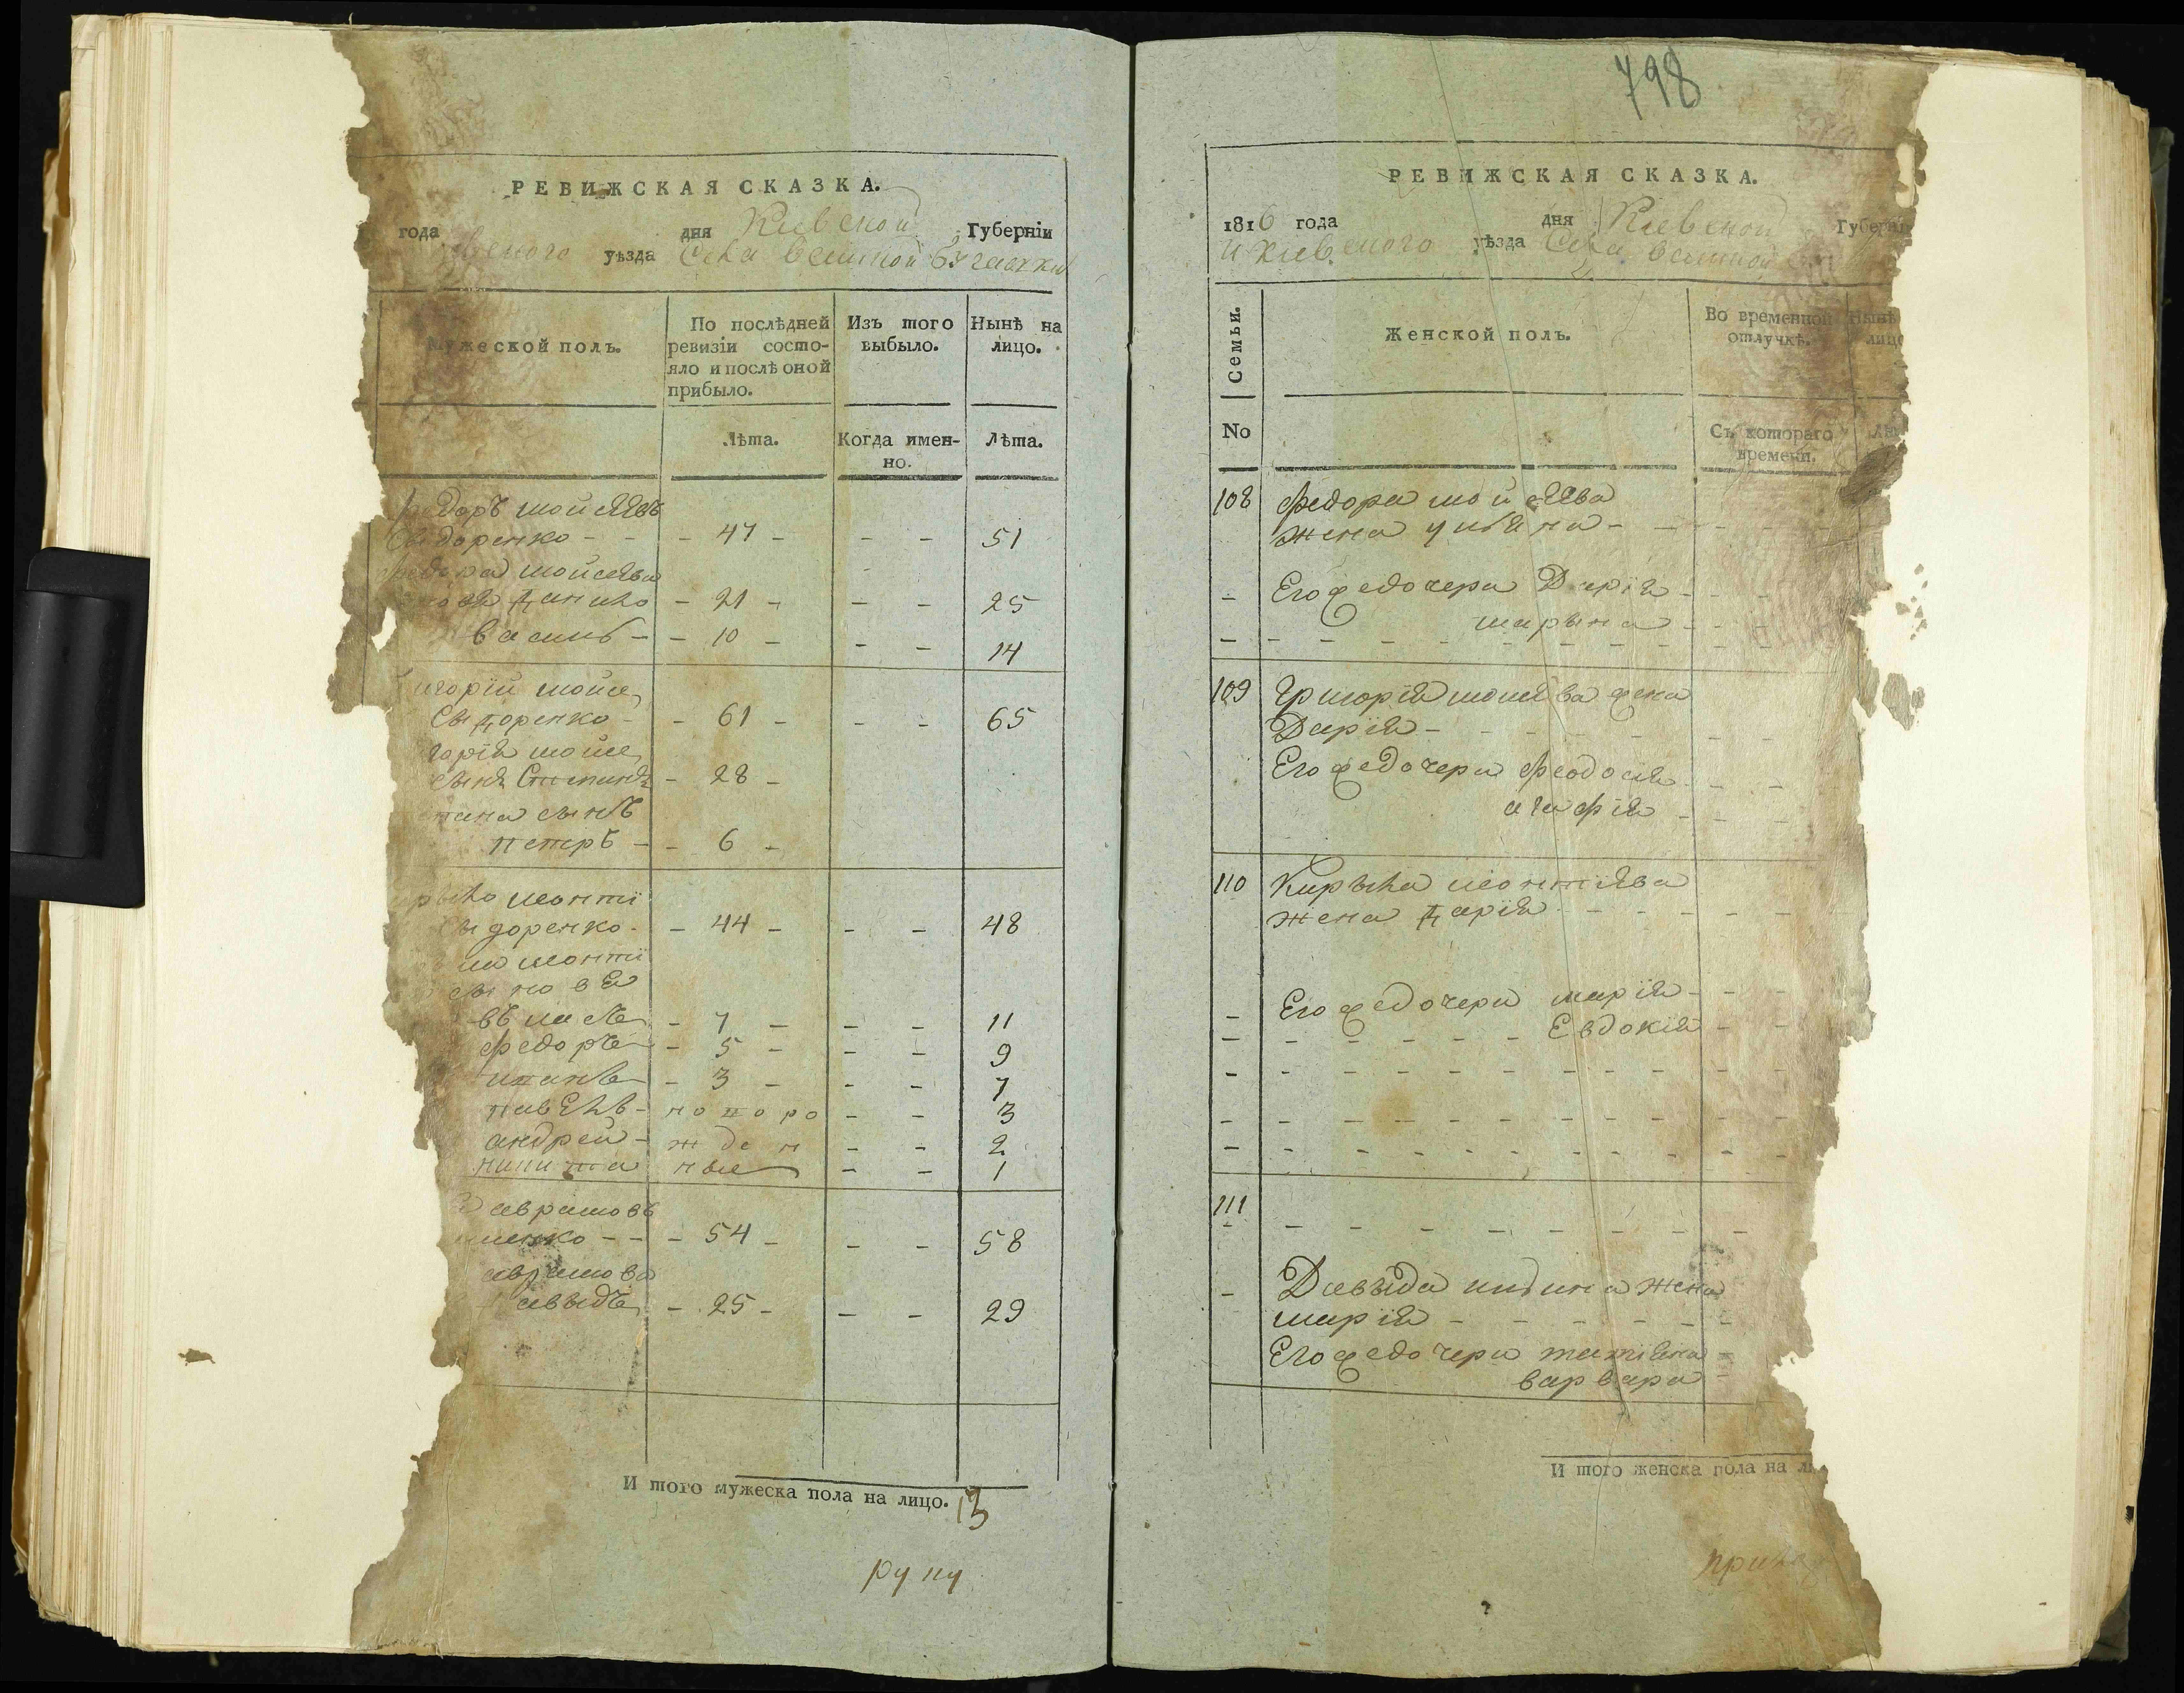 РЕВИЖСКАЯ СКАЗКА.
года дня Киевской Губернїи
вского уѣзда Села Великой Бугаевки
Мужеской полъ.
По послѣдней ревизїи состо-
яло и послѣ оной
прибыло.
Изъ того
выбыло.
Нынѣ на
лицо.
Лѣта.
Когда имен-
но.
Лѣта.
Федоръ Мойсѣевъ
Сидоренко - - - 47 - - - 51
Федора Мойсѣева
Данило - 21 - - - 25
Василь - - 10 - - - 14
игорїй Мойсе
Сыдоренко - - 61 - - - 65
горїя Мойсе
сынъ Степанъ - 28 -
пана сынъ
Петръ - - 6 -
рыло Леонтї
Сыдоренко - - 44 - - - 48
ла Леонтї
сыновя
- 7 - - - 11
Федоръ - 5 - - - 9
- 3 - - - 7
Павелъ - новоро - - 3
Андрей - жден - - 2
Никита ные - - 1
Аврамовъ
енко - - - 54 - - - 58
Аврамова
авыдъ - 25 - - - 29
И того мужеска пола на лицо. 13
руку
798
РЕВИЖСКАЯ СКАЗКА.
1816 года дня Киевской Губернї
и Киевского уѣзда Села Великой
Семьи.
Женской полъ.
Во временной
отлучкѣ.
Нынѣ
лицо
No
Съ котораго
времени.
Лѣт
108 Федора Мойсѣева
жена Улияна - - - - -
- Его же дочери Дарїя - - -
Марына - - -
109 Григорїя Мойсѣева жена
Дарїя - - - - - - -
Его же дочери Феодосїя - -
Агафїя - - -
110 Кирыла Леонтїева
жена Дарїя - - - - - -
- Его же дочери Марїя - - -
- - - - - - - Евдокїя - -
111
- Давыда жена
Марїя - - - - - -
Его же дочери Татїяна -
Варвара -
И того женска пола на ли
прило